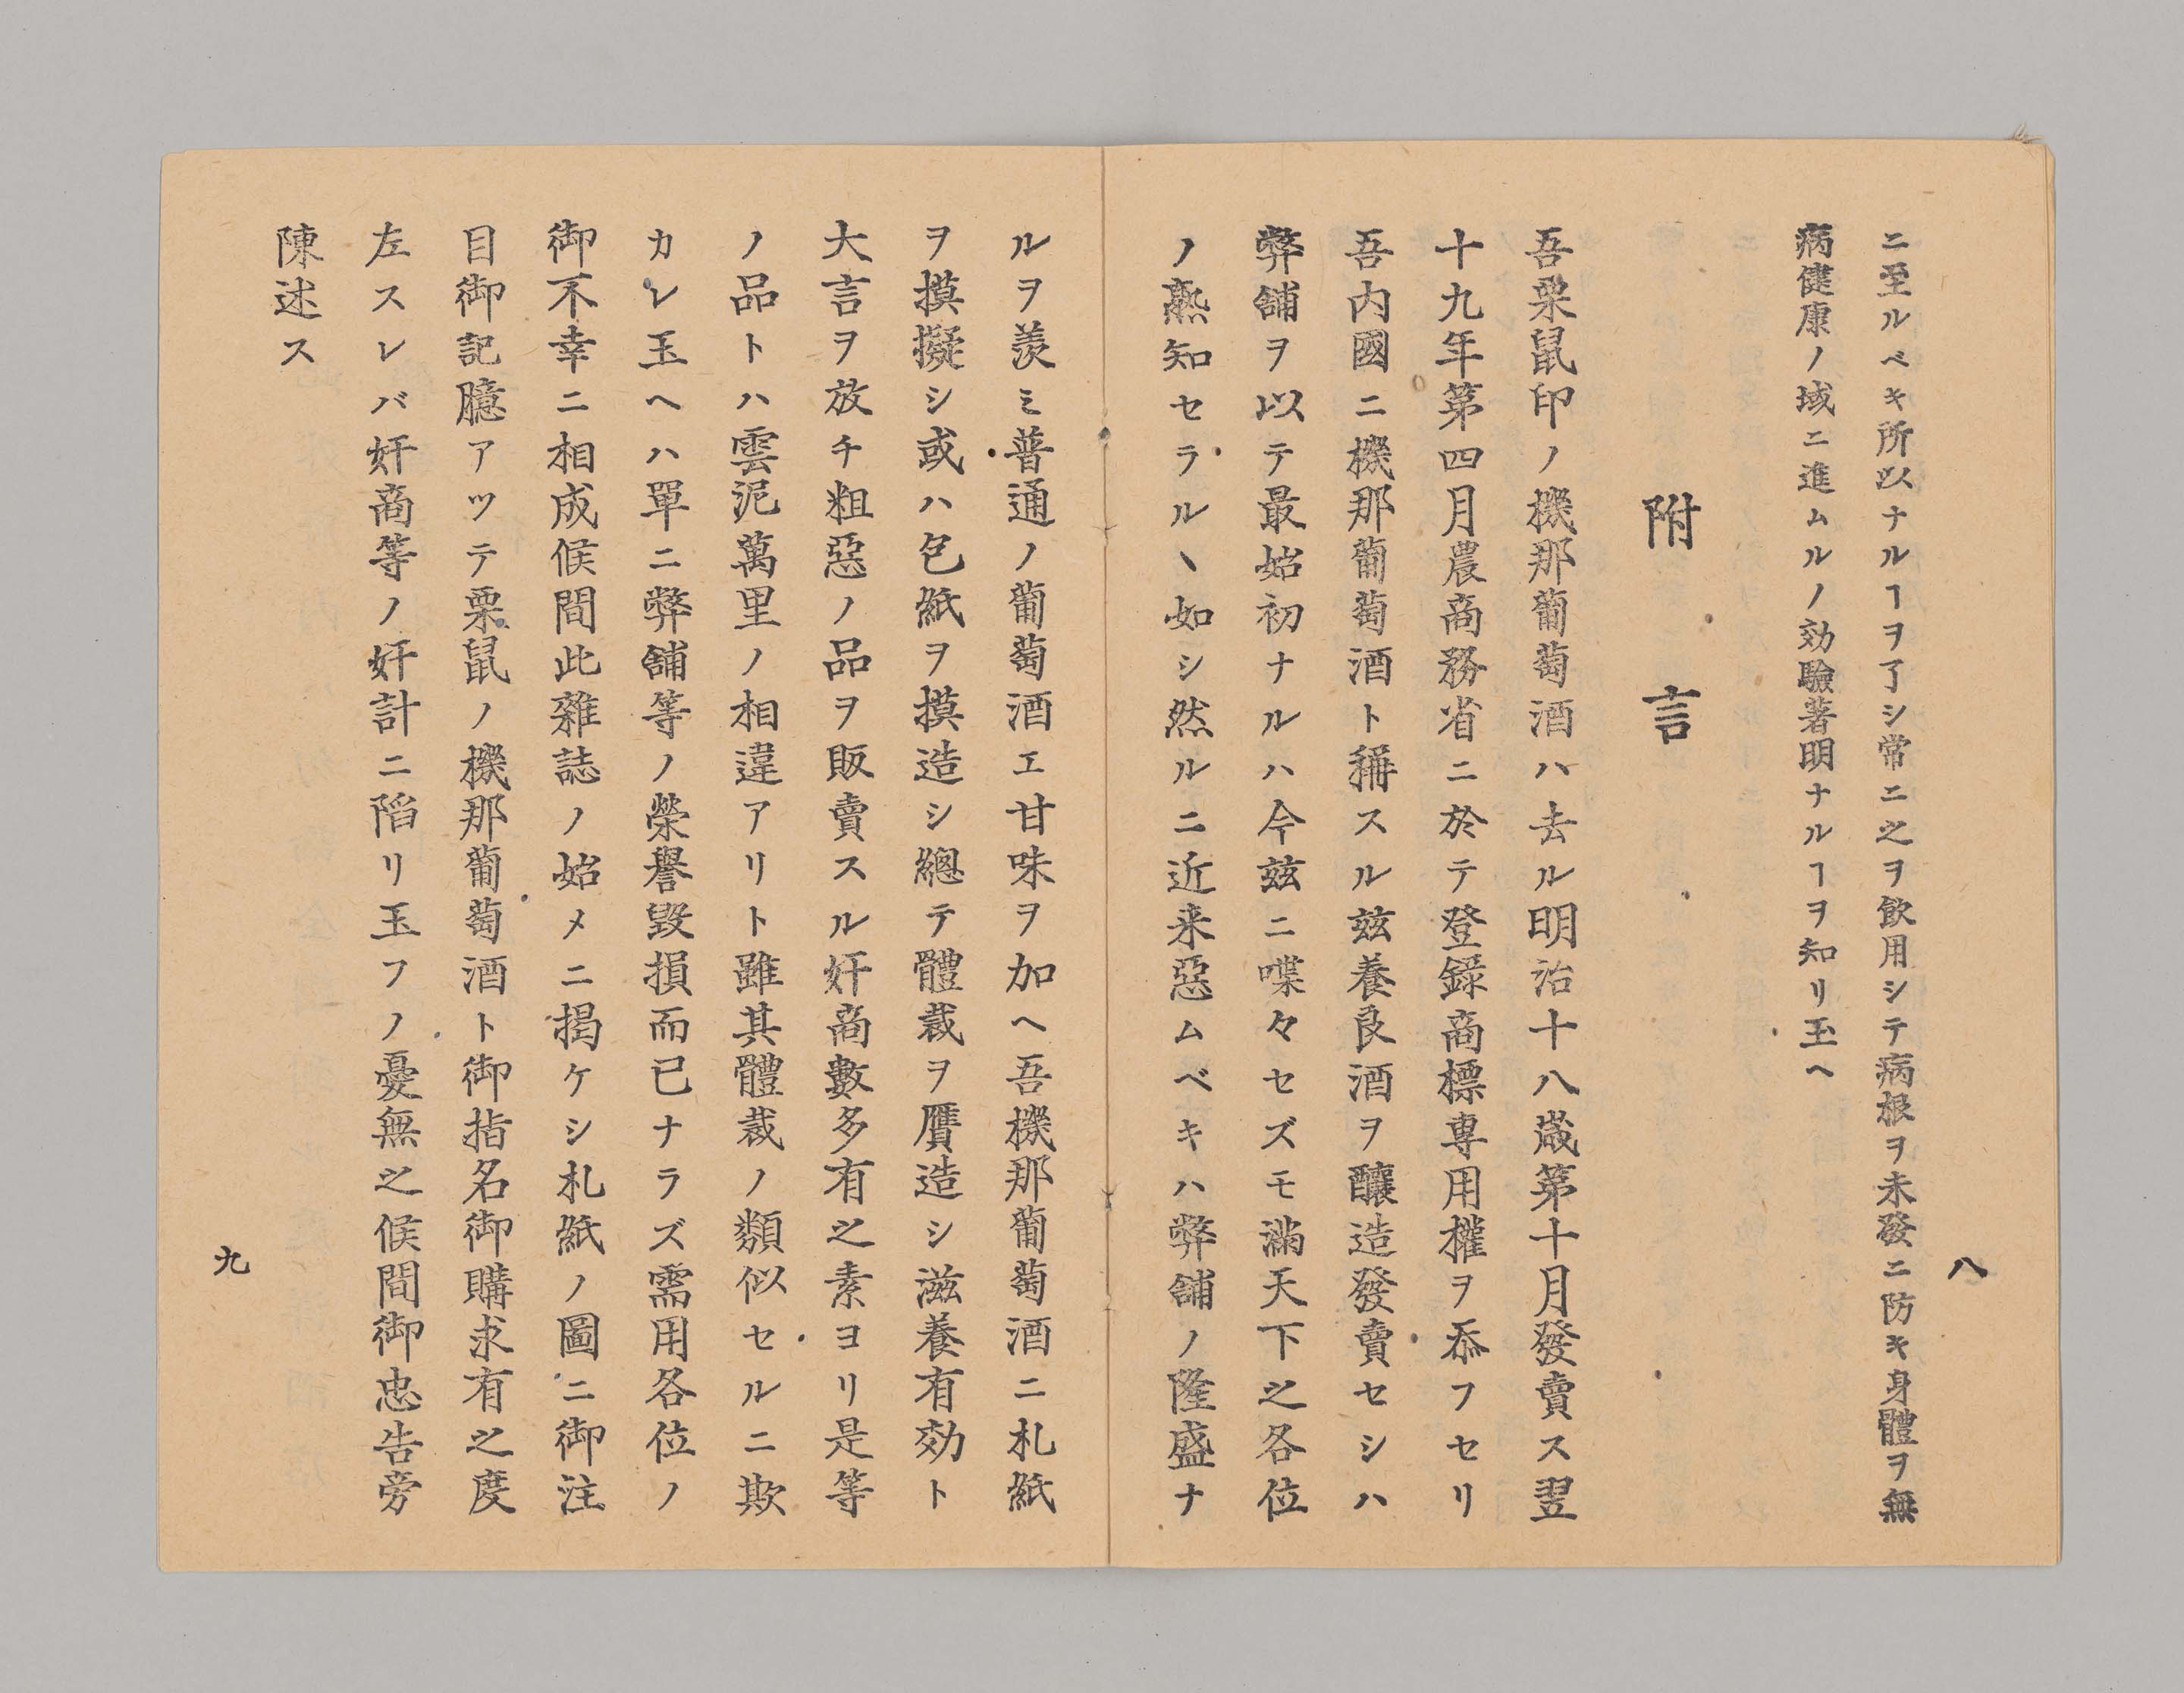 八
ニ至ルベキ所以ナルヿヲ了シ常ニ之ヲ飲用シテ病根ヲ未發ニ防キ身體ヲ無
病健康ノ域ニ進ムルノ効驗著明ナルヿヲ知リ玉ヘ
附言
吾栗鼠印ノ機那葡萄酒ハ去ル明治十八歳第十月發賣ス翌
十九年第四月農商務省ニ於テ登錄商標専用權ヲ忝フセリ
吾内國ニ機那葡萄酒ト稱スル玆養良酒ヲ釀造發賣セシハ
弊舖ヲ以テ最始初ナルハ今玆ニ喋々セズモ滿天下之各位
ノ熟知セラルヽ如シ然ルニ近来惡ムベキハ弊舖ノ隆盛ナ
ルヲ羨ミ普通ノ葡萄酒エ甘味ヲ加ヘ吾機那葡萄酒ニ札紙
ヲ摸擬シ或ハ包紙ヲ摸造シ總テ體裁ヲ贋造シ滋養有効ト
大言ヲ放チ粗惡ノ品ヲ販賣スル奸商數多有之素ヨリ是等
ノ品トハ雲泥萬里ノ相違アリト雖其體裁ノ類似セルニ欺
カレ玉ヘハ單ニ弊舖等ノ榮譽毀損而已ナラズ需用各位ノ
御不幸ニ相成候間此雜誌ノ始メニ揭ケシ札紙ノ圖ニ御注
目御記臆アツテ栗鼠ノ機那葡萄酒ト御指名御購求有之度
左スレバ奸商等ノ奸計ニ陷リ玉フノ憂無之候間御忠告旁
陳述ス
九